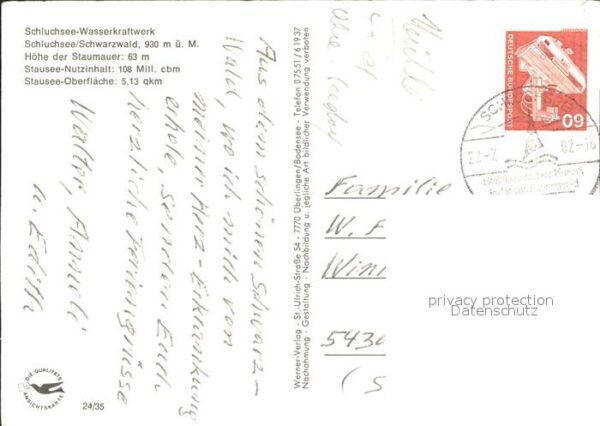 Schluchsee-Wasserkraftwerk
Schluchsee/Schwarzwald, 930 m ü. M.
Höhe der Staumauer: 63 m
Stausee-Nutzinhalt: 108 Mill. cbm
Stausee-Oberfläche: 5,13 qkm
Aus dem schönen Schwarz-
wald, wo ich mich von
meiner Herz-Erkrankung
erhole, senden Euch
herzliche Feriengrüsse
Walter, Anneli
u. Edith
DIE QUALITÄTS
ANSICHTSKARTE
24/35
Werner-Verlag · St.-Ulrich-Straße 54 · 7770 Überlingen/Bodensee · Telefon 07551/61937
Nachahmung · Gestaltung · Nachbildung u. jegliche Art bildlicher Verwendung verboten
DEUTSCHE BUNDESPOST
60
22.-7. 82.-16
Familie
W. F
Win
5430
(S
privacy protection
Datenschutz